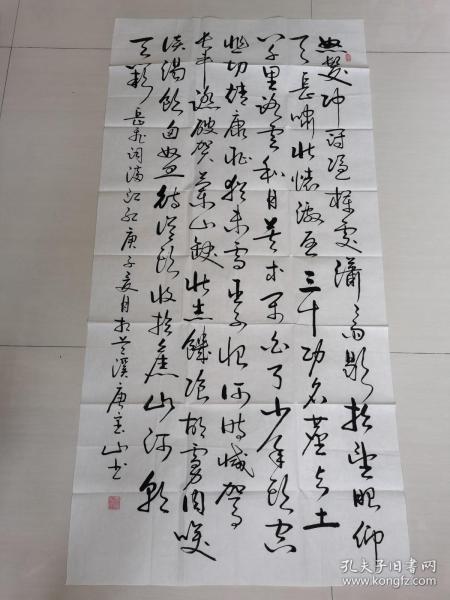 怒发冲冠凭栏处潇潇雨歇抬望眼仰
天长啸壮怀激烈三十功名尘与土
八千里路云和月莫等闲白了少年头空
悲切靖康耻犹未雪臣子恨何时灭驾
长车踏破贺兰山缺壮志饥餐胡虏肉笑
谈渴饮匈奴血待从头收拾旧山河朝
天阙 岳飞词满江红庚子夏月于兰溪唐宝山书
孔夫子旧书网
www.kongfz.com